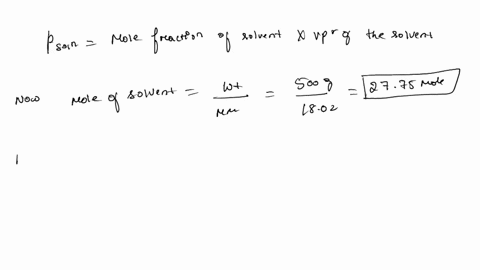 Psoln = Mole fraction of solvent X vpr of the solvent
Now Mole of solvent = wt/mm = 500g/18.02 = 27.75 mole